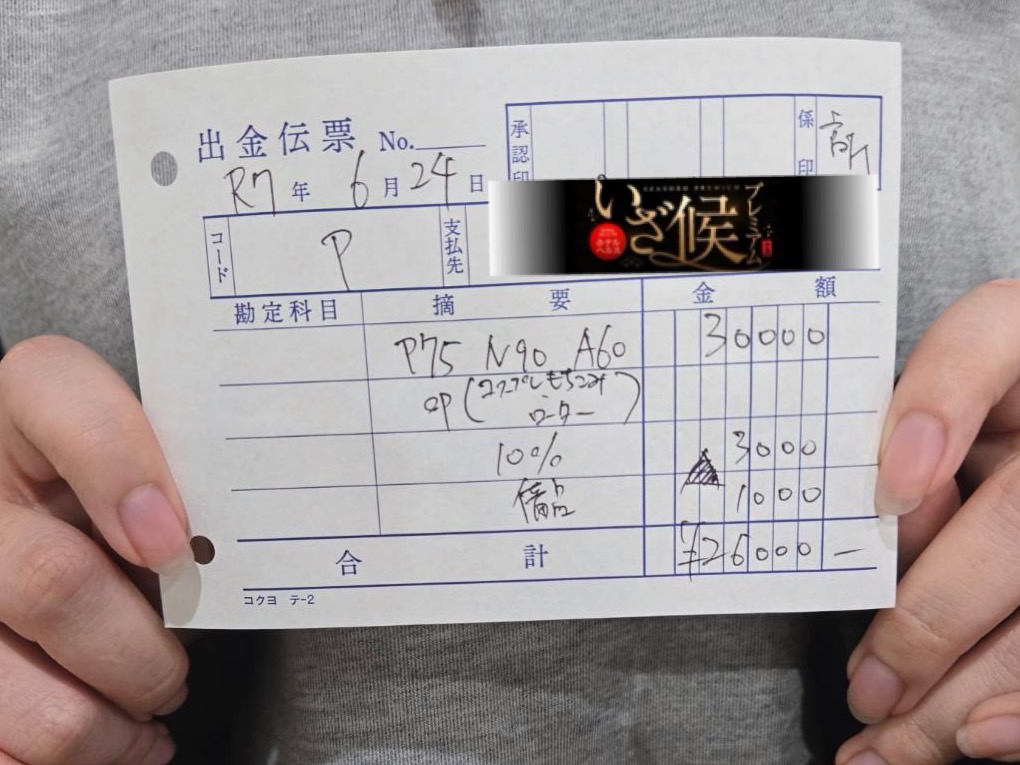 出金伝票 No.
承認印 係印
R7年 6月 24日
コード P 支払先
いざ候 プレミアム
ホテルヘルス
勘定科目 摘要 金額
P75 N90 A60 30000
op(コスプレもちこみ
ローター)
10% ▲3000
備品 1000
合計 ¥26000―
コクヨ テ-2